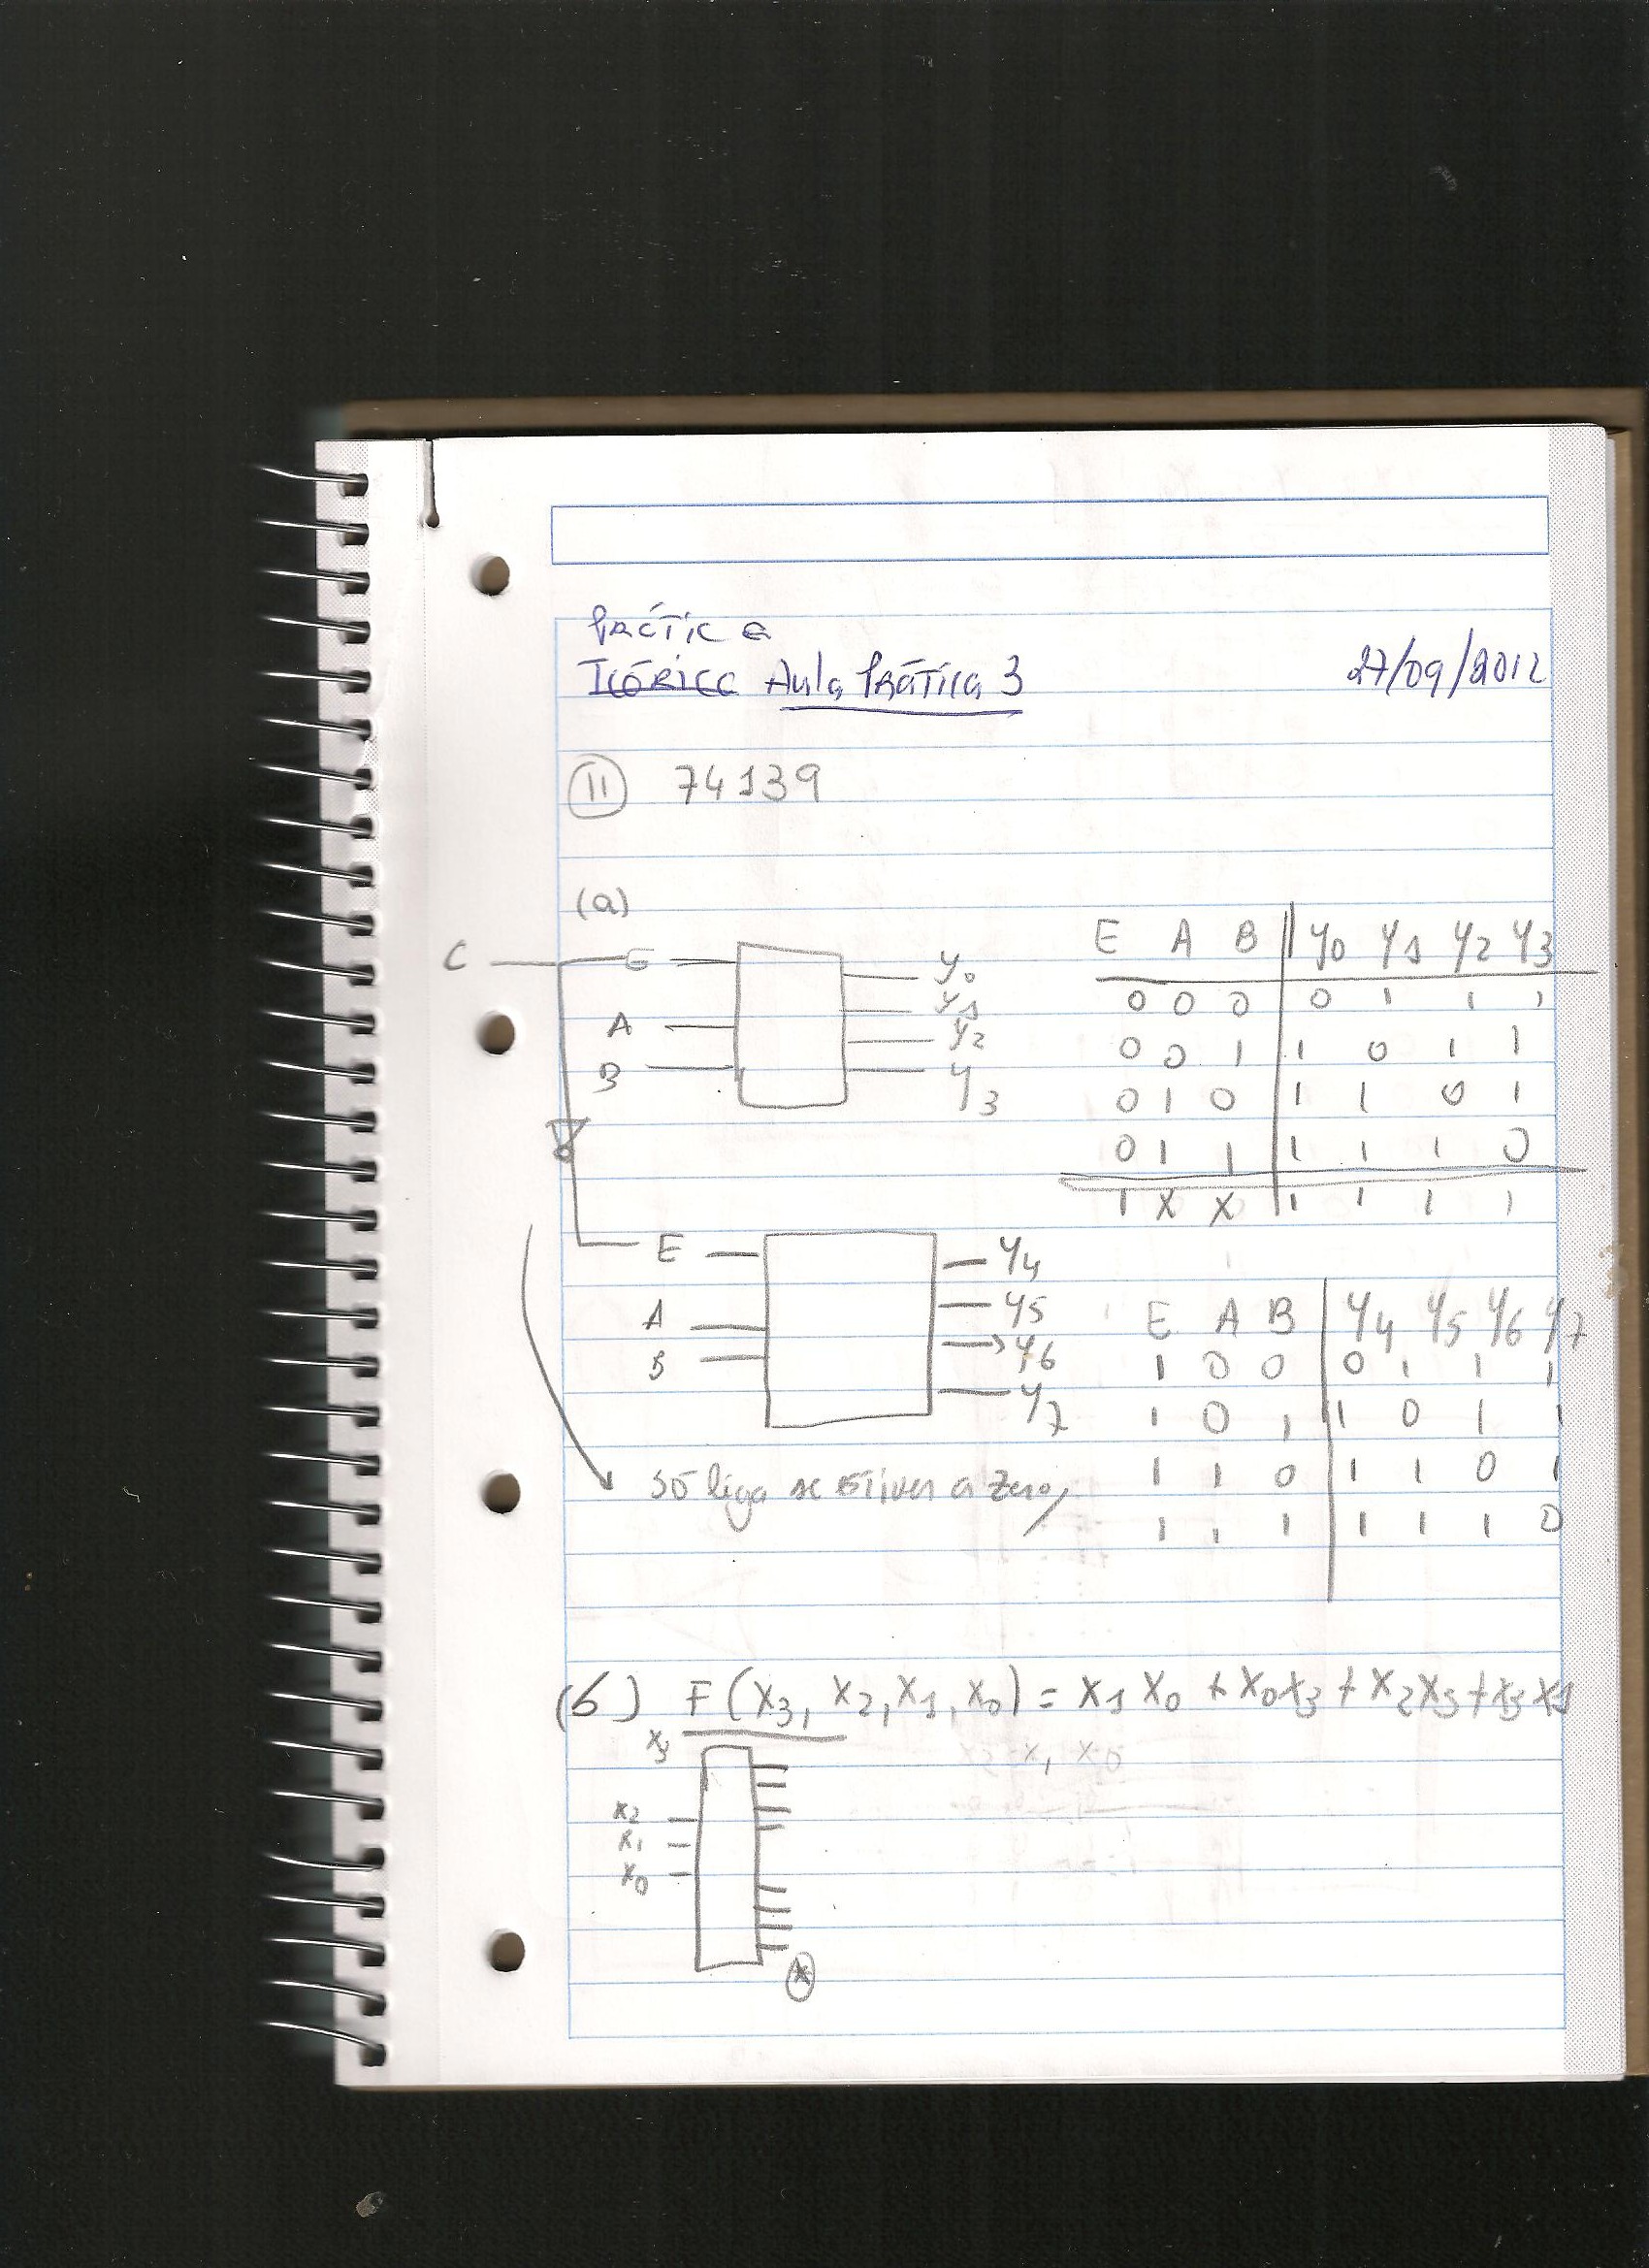 Práctica
Teórica Aula Prática 3 27/09/2012
11 74139
(a)
C E y0
y1
A y2
B y3
E A B y0 y1 y2 y3
0 0 0 0 1 1 1
0 0 1 1 0 1 1
0 1 0 1 1 0 1
0 1 1 1 1 1 0
1 X X 1 1 1 1
E y4
A y5
B y6
y7
E A B y4 y5 y6 y7
1 0 0 0 1 1 1
1 0 1 1 0 1 1
1 1 0 1 1 0 1
1 1 1 1 1 1 0
só liga se estiver a zero
(b) F(x3, x2, x1, x0) = x1 x0 + x0 x3 + x2 x3 + x3 x1
x3
x2
x1
x0
*